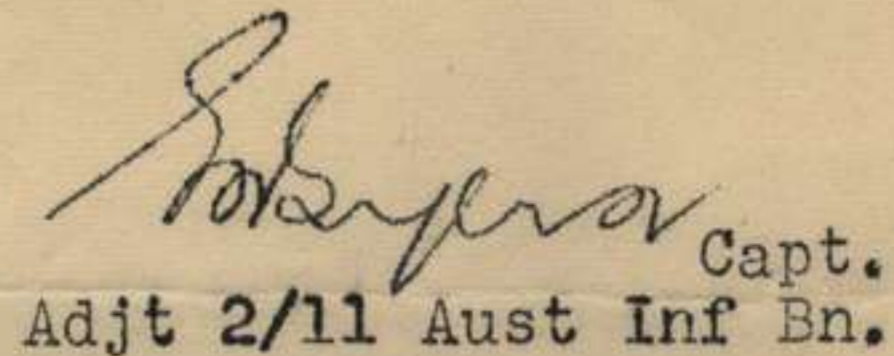 Capt.
Adjt 2/11 Aust Inf Bn.